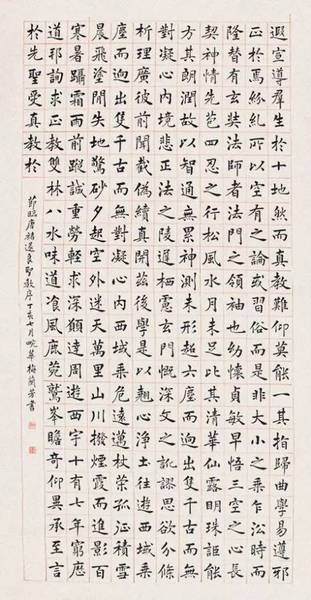 遐宣導群生於十地然而真教難仰莫能一其指歸曲學易遵邪
正於焉紛糺所以空有之論或習俗而是非大小之乘乍沿時而
隆替有玄奘法師者法門之領袖也幼懷貞敏早悟三空之心長
契神情先苞四忍之行松風水月未足比其清華仙露明珠詎能
方其朗潤故以智通無累神測未形超六塵而迥出隻千古而無
對凝心內境悲正法之陵遲栖慮玄門慨深文之訛謬思欲分條
析理廣彼前聞截偽續真開茲後學是以翹心淨土往遊西域乘
塵而迥出隻千古而無對凝心內西域乘危遠邁杖策孤征積雪
晨飛塗閒失地驚砂夕起空外迷天萬里山川撥煙霞而進影百
寒暑躡霜雨而前蹤誠重勞輕求深願達周遊西宇十有七年窮
道邦詢求正教雙林八水味道飡風鹿菀鷲峯瞻奇仰異承至言
於先聖受真教於
節臨唐褚遂良聖教序丁亥七月畹華梅蘭芳書